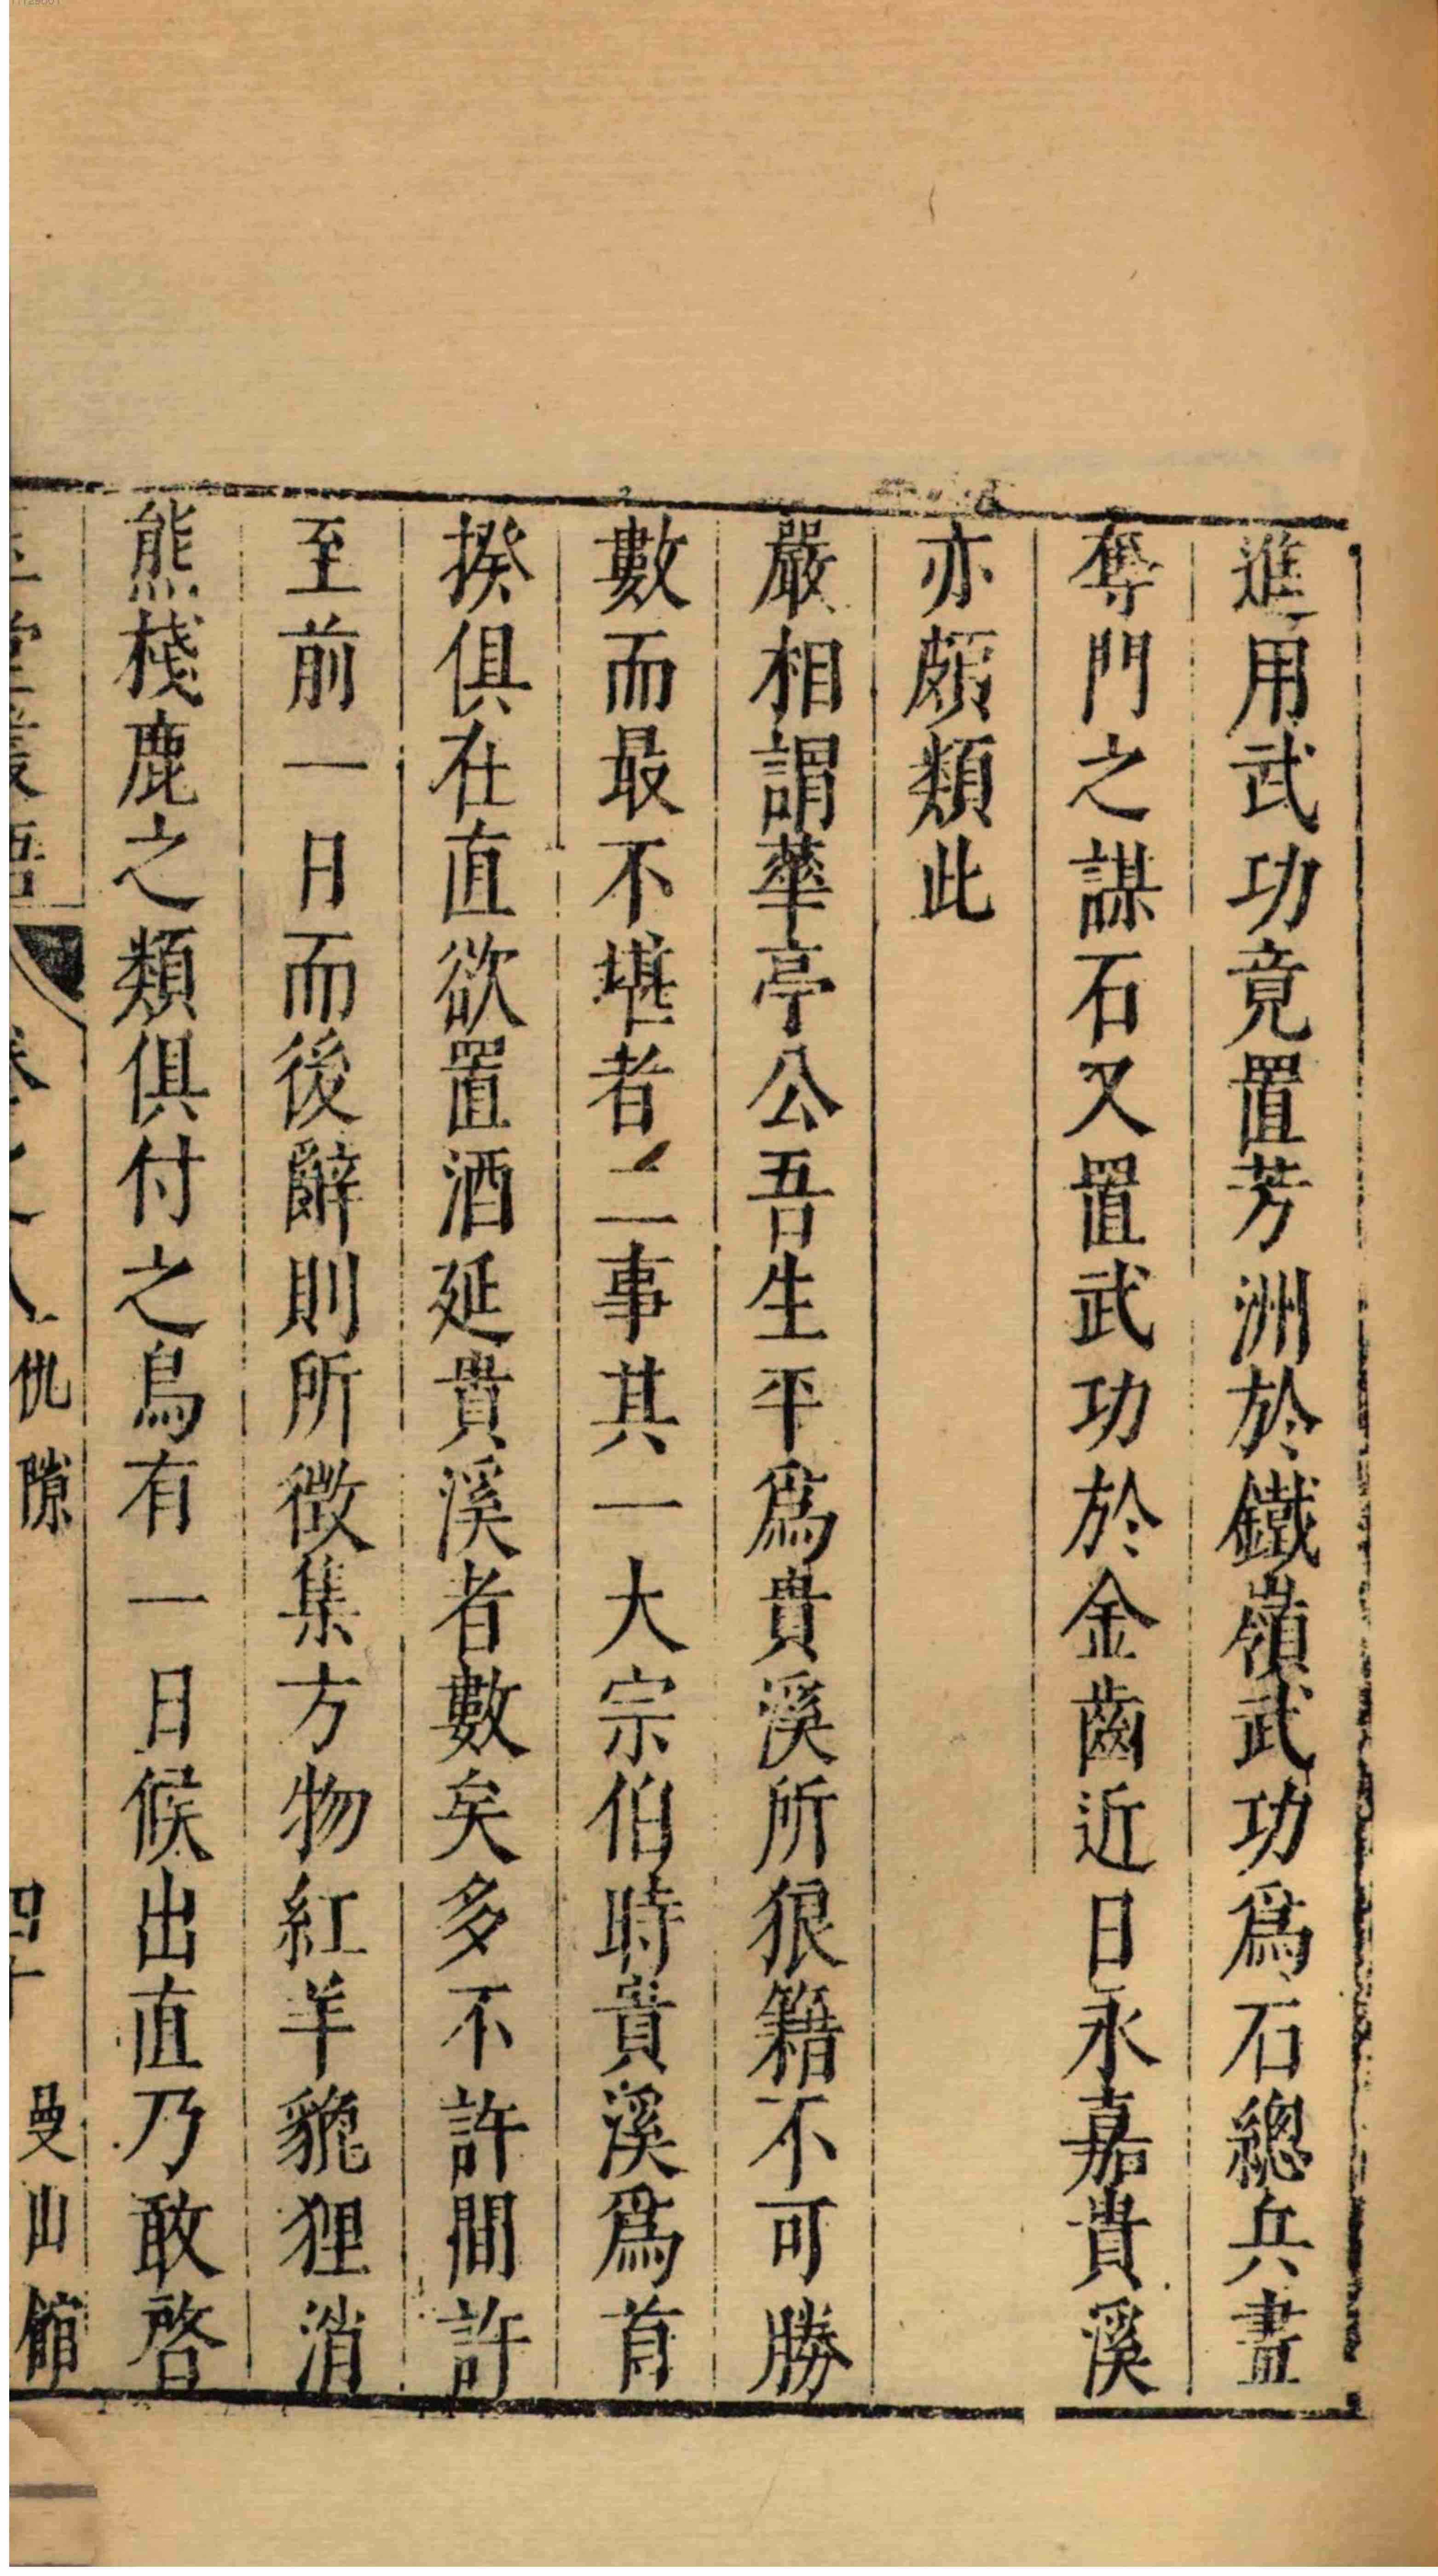 進用武功竟置芳洲於鐵嶺武功爲石總兵畫
奪門之謀石又置武功於金齒近日永嘉貴溪
亦頗類此
嚴相謂華亭公吾生平爲貴溪所狠籍不可勝
數而最不堪者二事其一大宗伯時貴溪爲首
揆俱在直欲置酒延貴溪者數矣多不許間許
至前一日而後辭則所徴集方物紅羊貔狸消
熊棧鹿之類俱付之烏有一日候出直乃敢啓
玉堂叢語 卷之八 仇隙 四十 曼山館